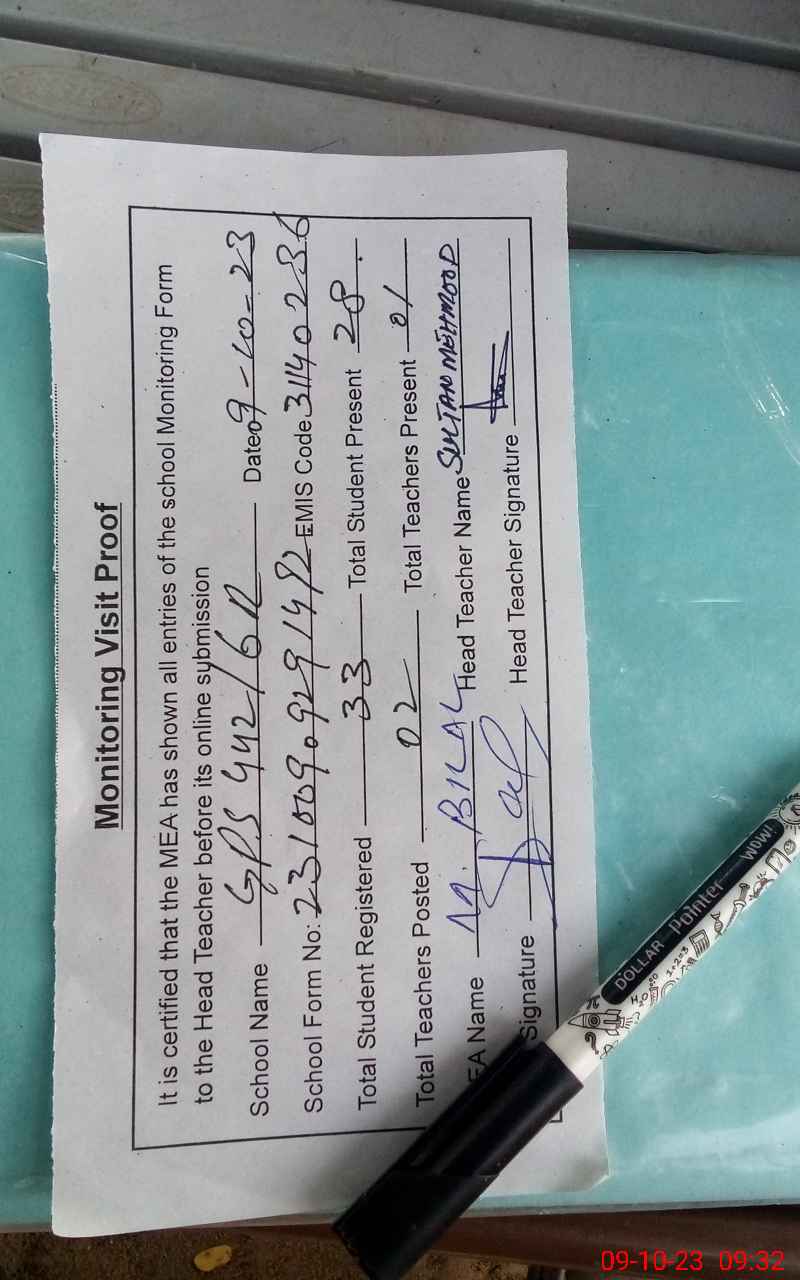 Monitoring Visit Proof
It is certified that the MEA has shown all entries of the school Monitoring Form
to the Head Teacher before its online submission
School Name GPS 442/6R Date 09-10-23
School Form No: 231009092914912 EMIS Code 31140236
Total Student Registered 33 Total Student Present 28
Total Teachers Posted 02 Total Teachers Present 01
EA Name M. BILAL Head Teacher Name SULTAN MEHMOOD
Signature Head Teacher Signature
DOLLAR Pointer WOW!
H2O
09-10-23 09:32